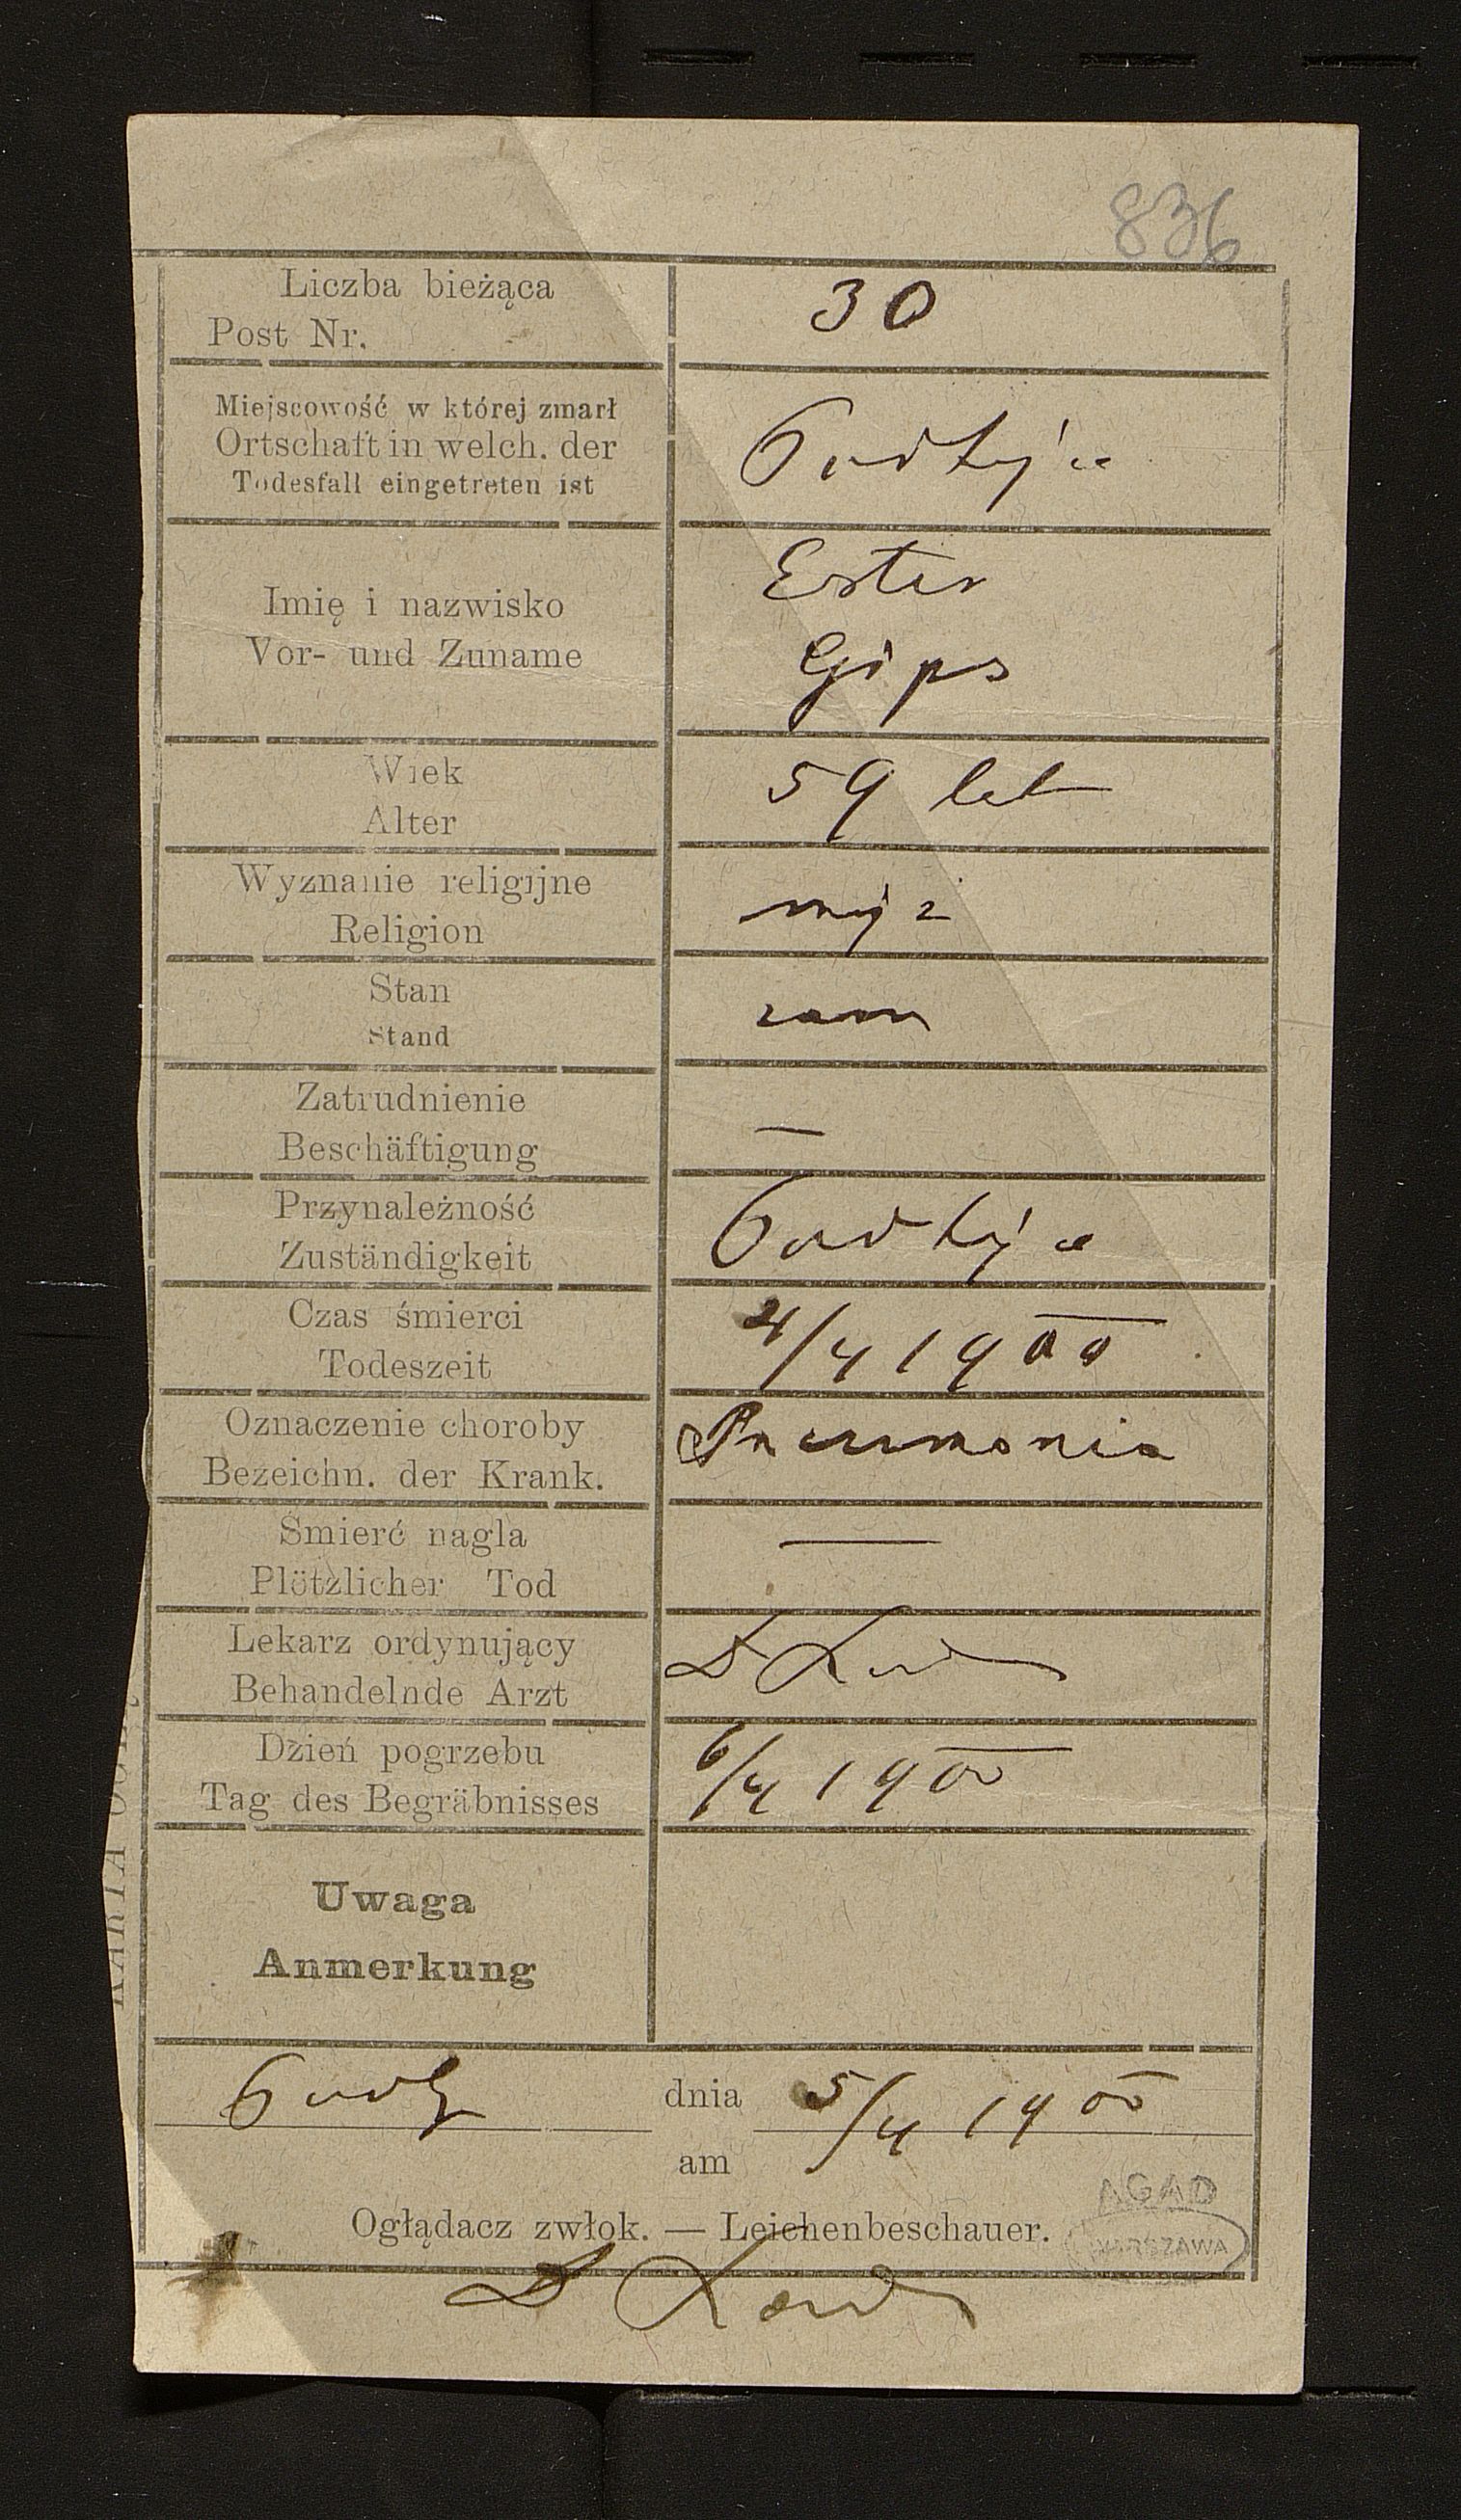 836
Liczba bieżąca
Post Nr.
30
Miejscowość w której zmarł
Ortschaft in welch. der
Todesfall eingetreten ist
Imię i nazwisko
Vor- und Zuname
Ester
Gips
Wiek
Alter
59 let
Wyznanie religijne
Religion
mojż
Stan
Stand
zam
Zatrudnienie
Beschäftigung
—
Przynależność
Zuständigkeit
Czas śmierci
Todeszeit
4/4 1900
Oznaczenie choroby
Bezeichn. der Krank.
Pneumonia
Śmierć nagla
Plötzlicher Tod
—
Lekarz ordynujący
Behandelnde Arzt
Dzień pogrzebu
Tag des Begräbnisses
6/4 1900
Uwaga
Anmerkung
dnia 5/4 1900
am
Oglądacz zwłok. — Leichenbeschauer.
AGAD
WARSZAWA